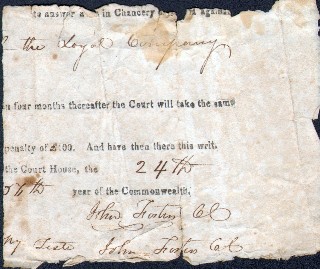 to answer a in Chancery against
the Loyal Company
n four months thereafter the Court will take the same
penalty of £100. And have then there this writ.
the Court House, the 24th
6th year of the Commonwealth.
John Foster Cl
My Teste John Foster Col